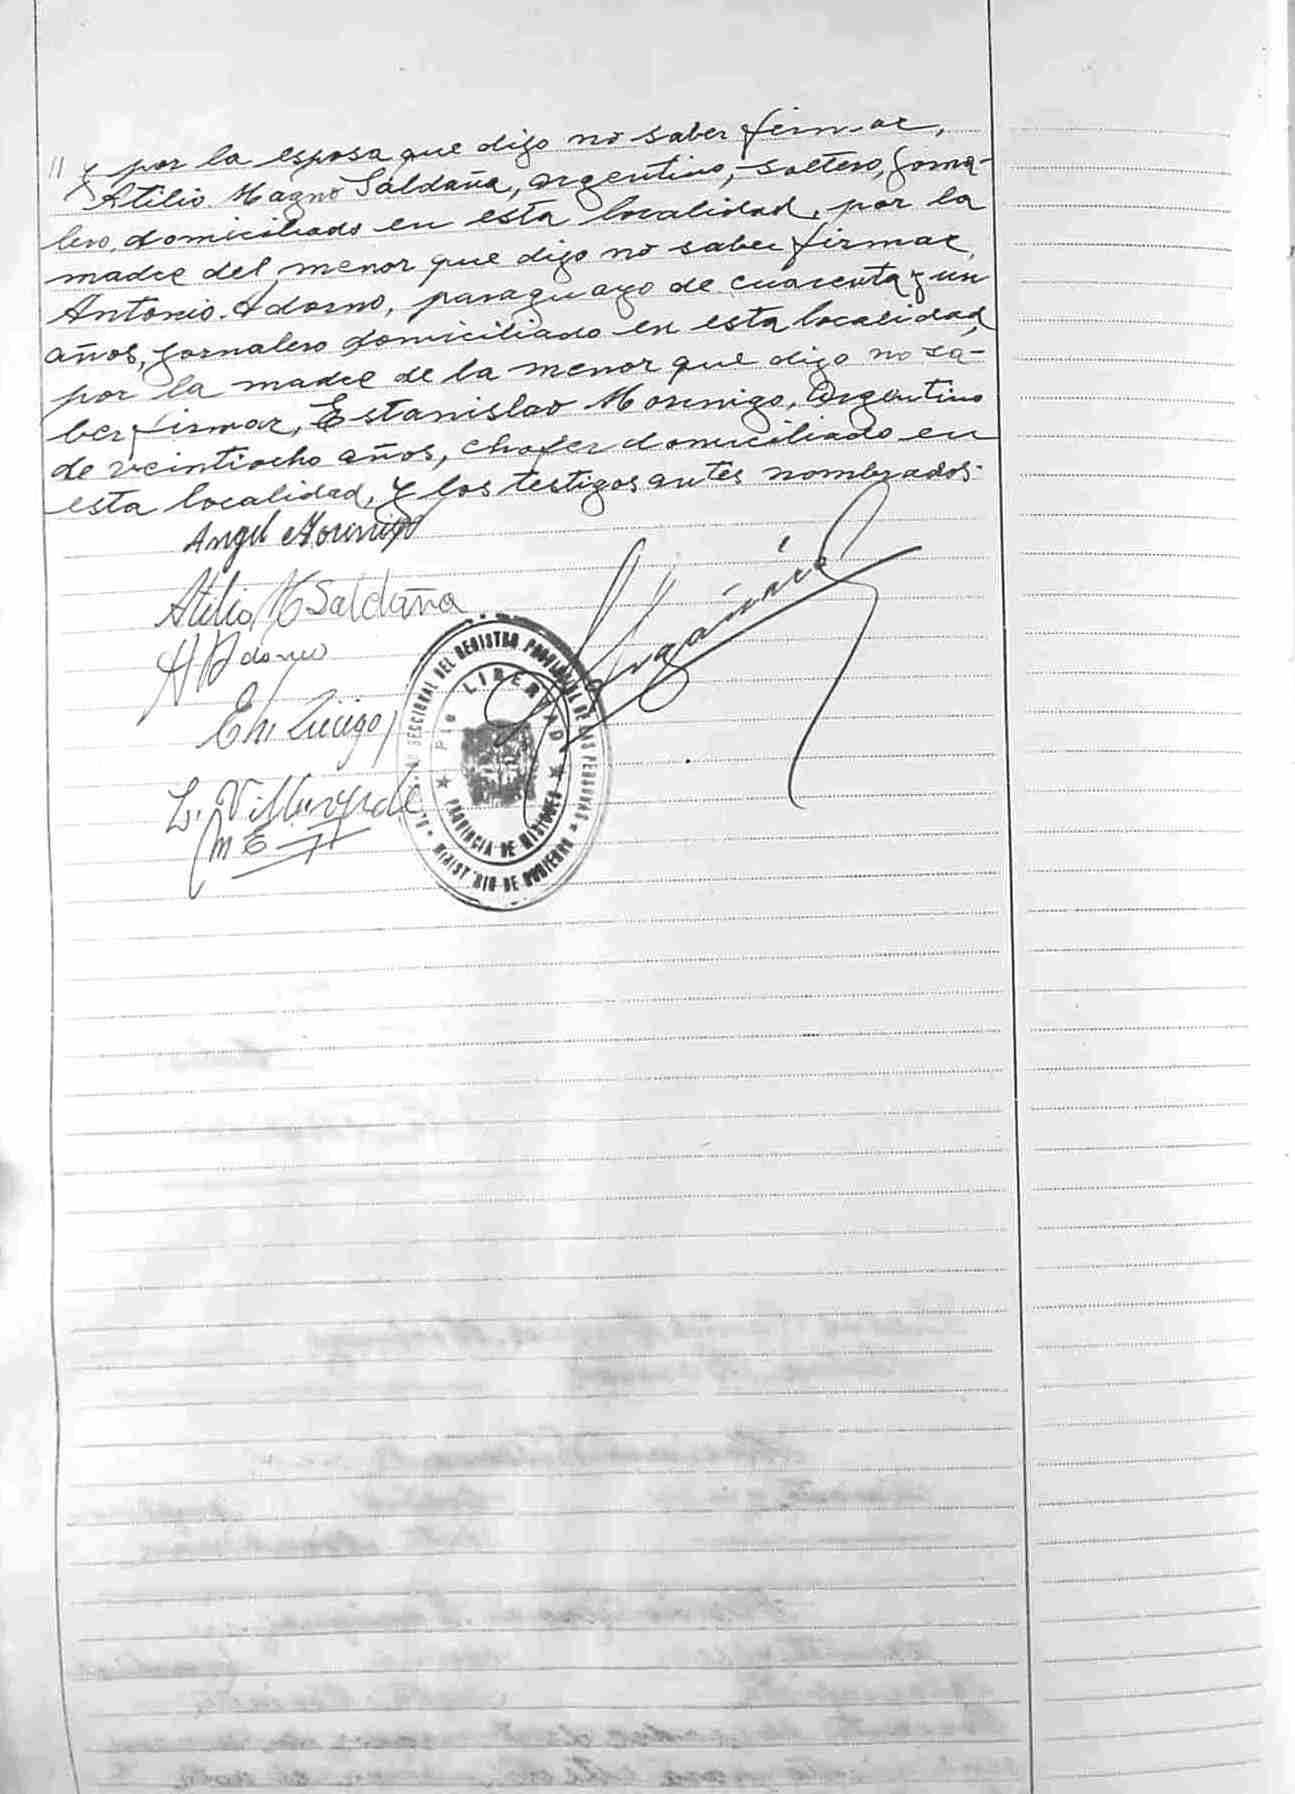 " y por la esposa que dijo no saber firmar,
Atilio Magno Saldaña, argentino, soltero, jorna-
lero, domiciliado en esta localidad, por la
madre del menor que dijo no saber firmar,
Antonio Adorno, paraguayo de cuarenta y un
años, jornalero domiciliado en esta localidad,
por la madre de la menor que dijo no sa-
ber firmar, Estanislao Morinigo, Argentino
de veintiocho años, chofer domiciliado en
esta localidad, y los testigos antes nombrados.
Angel Morinigo
Atilio M Saldaña
A Adorno
L. Villaverde
SECCIONAL DEL REGISTRO PROVINCIAL DE LAS PERSONAS
MINISTERIO DE GOBIERNO
LIBERTAD
PROVINCIA DE MISIONES